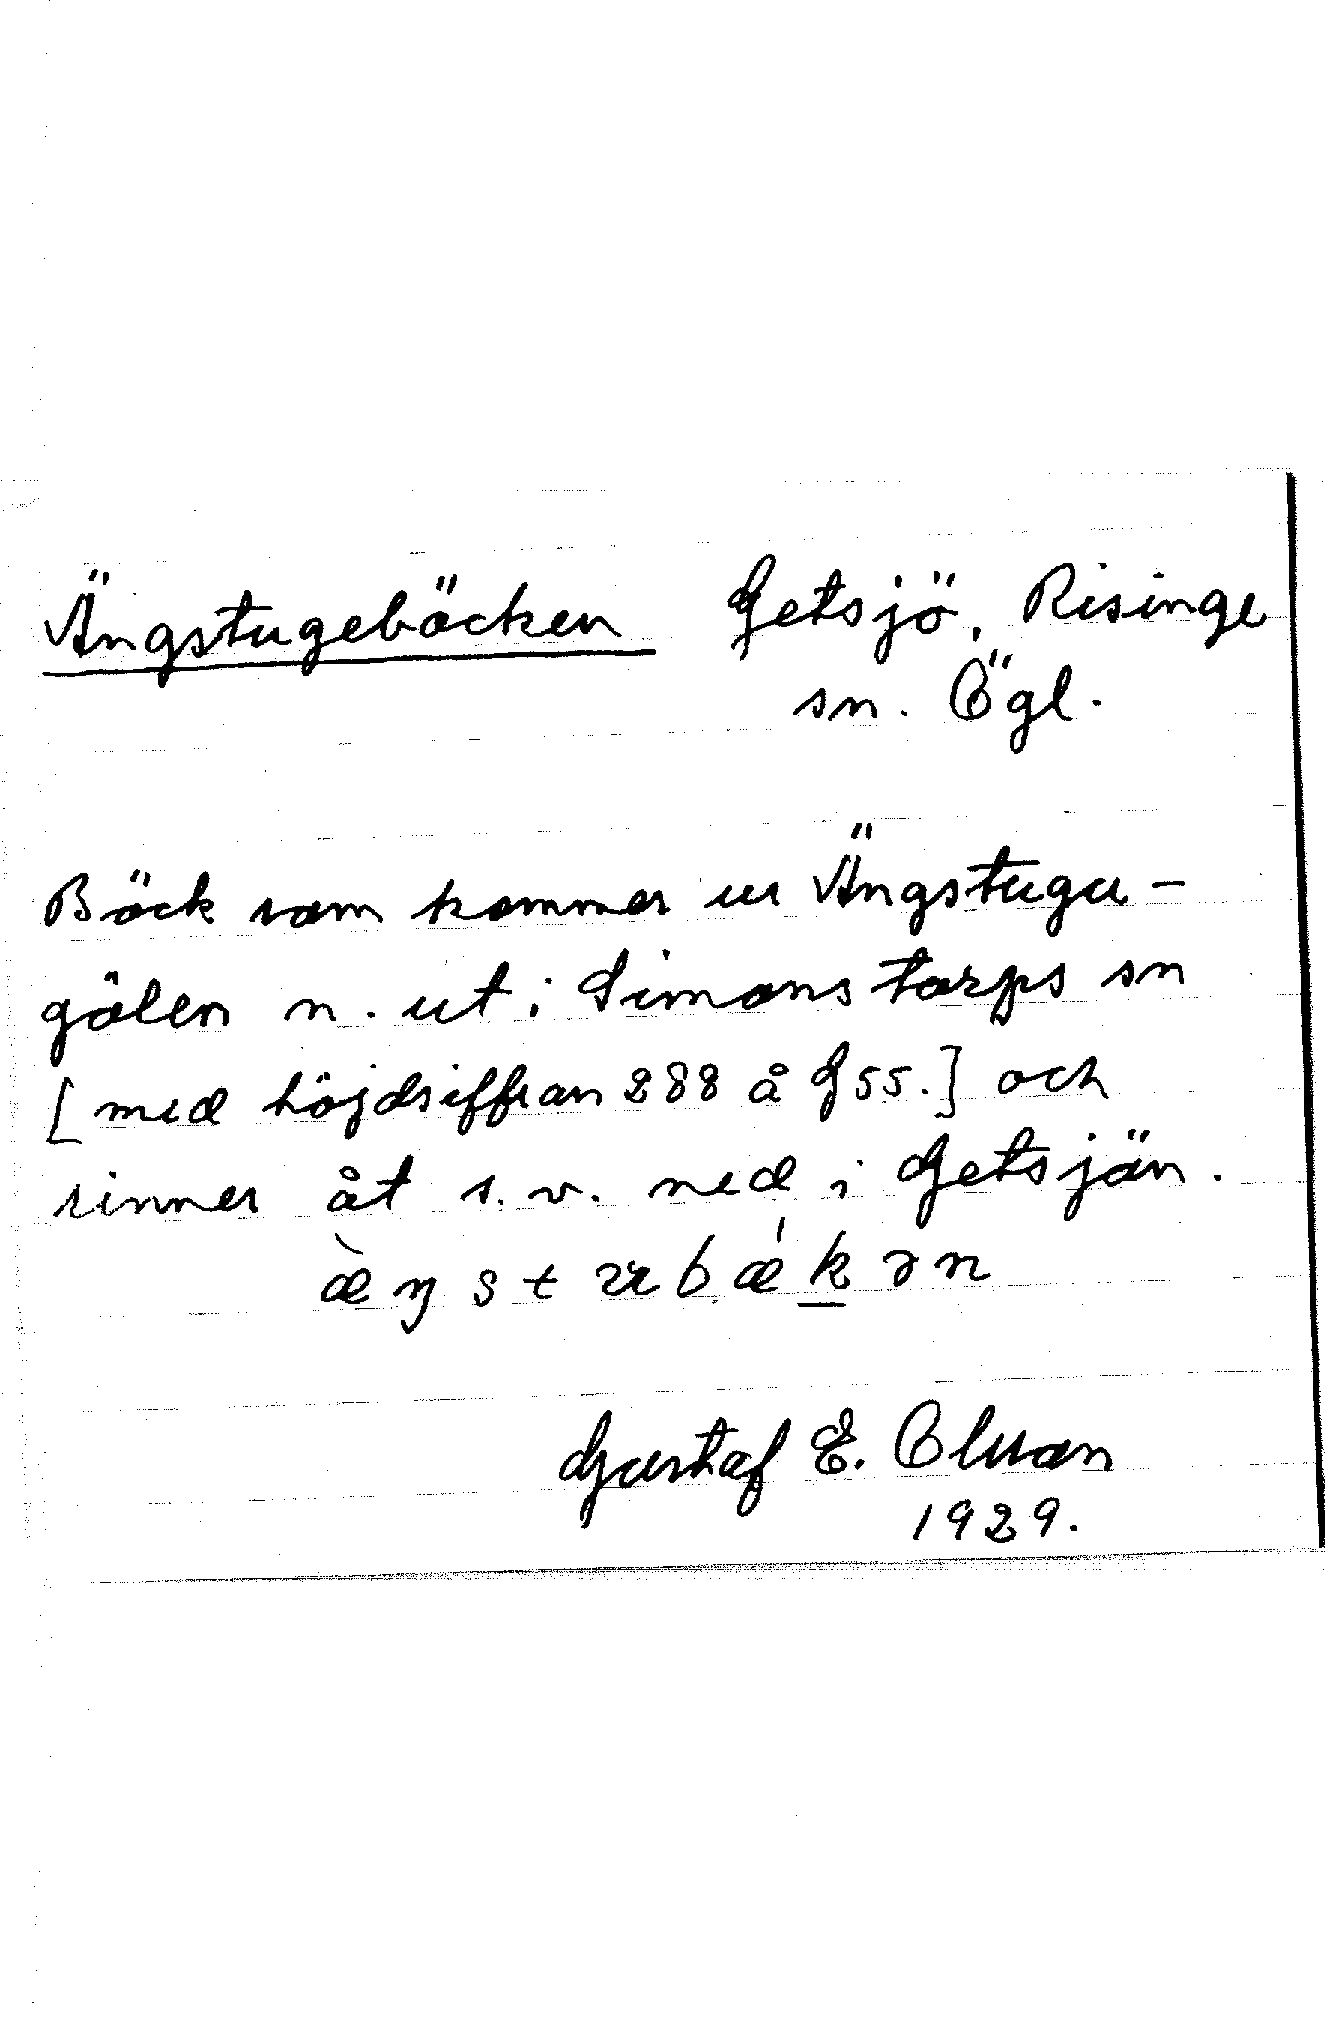 Ängstugebäcken Getsjö, Risinge
sn. Ögl.
Bäck som kommer ur Ängstuga-
gölen n. ut i Simonstorps sn
[med höjdsiffran 288 å G55.] och
rinner åt s.v. ned i Getsjön.
æ̀ŋstubǽkən
Gustaf E. Olsson
1929.